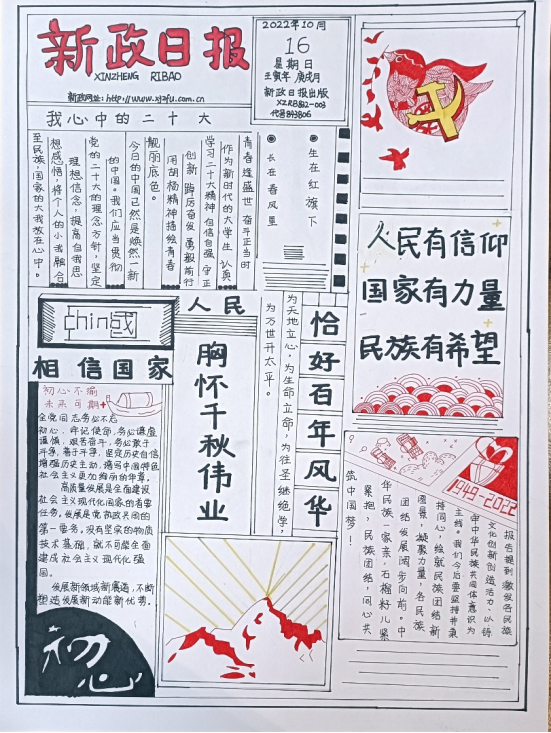 新政日报
XINZHENG RIBAO
新政网址:http://www.xjzfu.com.cn
2022年10月
16
星期日
壬寅年 庚戌月
新政日报出版
XZRB812-003
代号893806
我心中的二十大
生在红旗下
长在春风里
青春逢盛世 奋斗正当时
作为新时代的大学生 认真
学习二十大精神 自信自强 守正
创新 踔厉奋发 勇毅前行
用胡杨精神描绘青春
靓丽底色。
今日的中国已然是焕然一新
的中国。我们应当贯彻
党的二十大的理念方针,坚定
理想信念,提高自我思
想感悟,将个人的小我融合
至民族,国家的大我放在心中。
人民有信仰
国家有力量
民族有希望
China國
相信国家
人民
胸怀千秋伟业
恰好百年风华
为天地立心,为生命立命,为往圣继绝学,
为万世开太平。
初心不渝
未来可期
全党同志务必不忘
初心、牢记使命,务必谦虚
谨慎、艰苦奋斗,务必敢于
斗争、善于斗争,坚定历史自信
增强历史主动,谱写中国特色
社会主义更加绚丽的华章。
高质量发展是全面建设
社会主义现代化国家的首要
任务。发展是党执政兴国的
第一要务。没有坚实的物质
技术基础,就不可能全面
建成社会主义现代化强
国。
发展新领域新赛道,不断
塑造发展新动能新优势。
初心
1949-2022
报告提到激发各民族
文化创新创造活力,以铸
牢中华民族共同体意识为
主线。我们今后要坚持并秉
持同心,绘就民族团结新
图景,凝聚力量,各民族
团结发展阔步向前。中
华民族一家亲,石榴籽儿紧
紧抱,民族团结,同心共
筑中国梦!